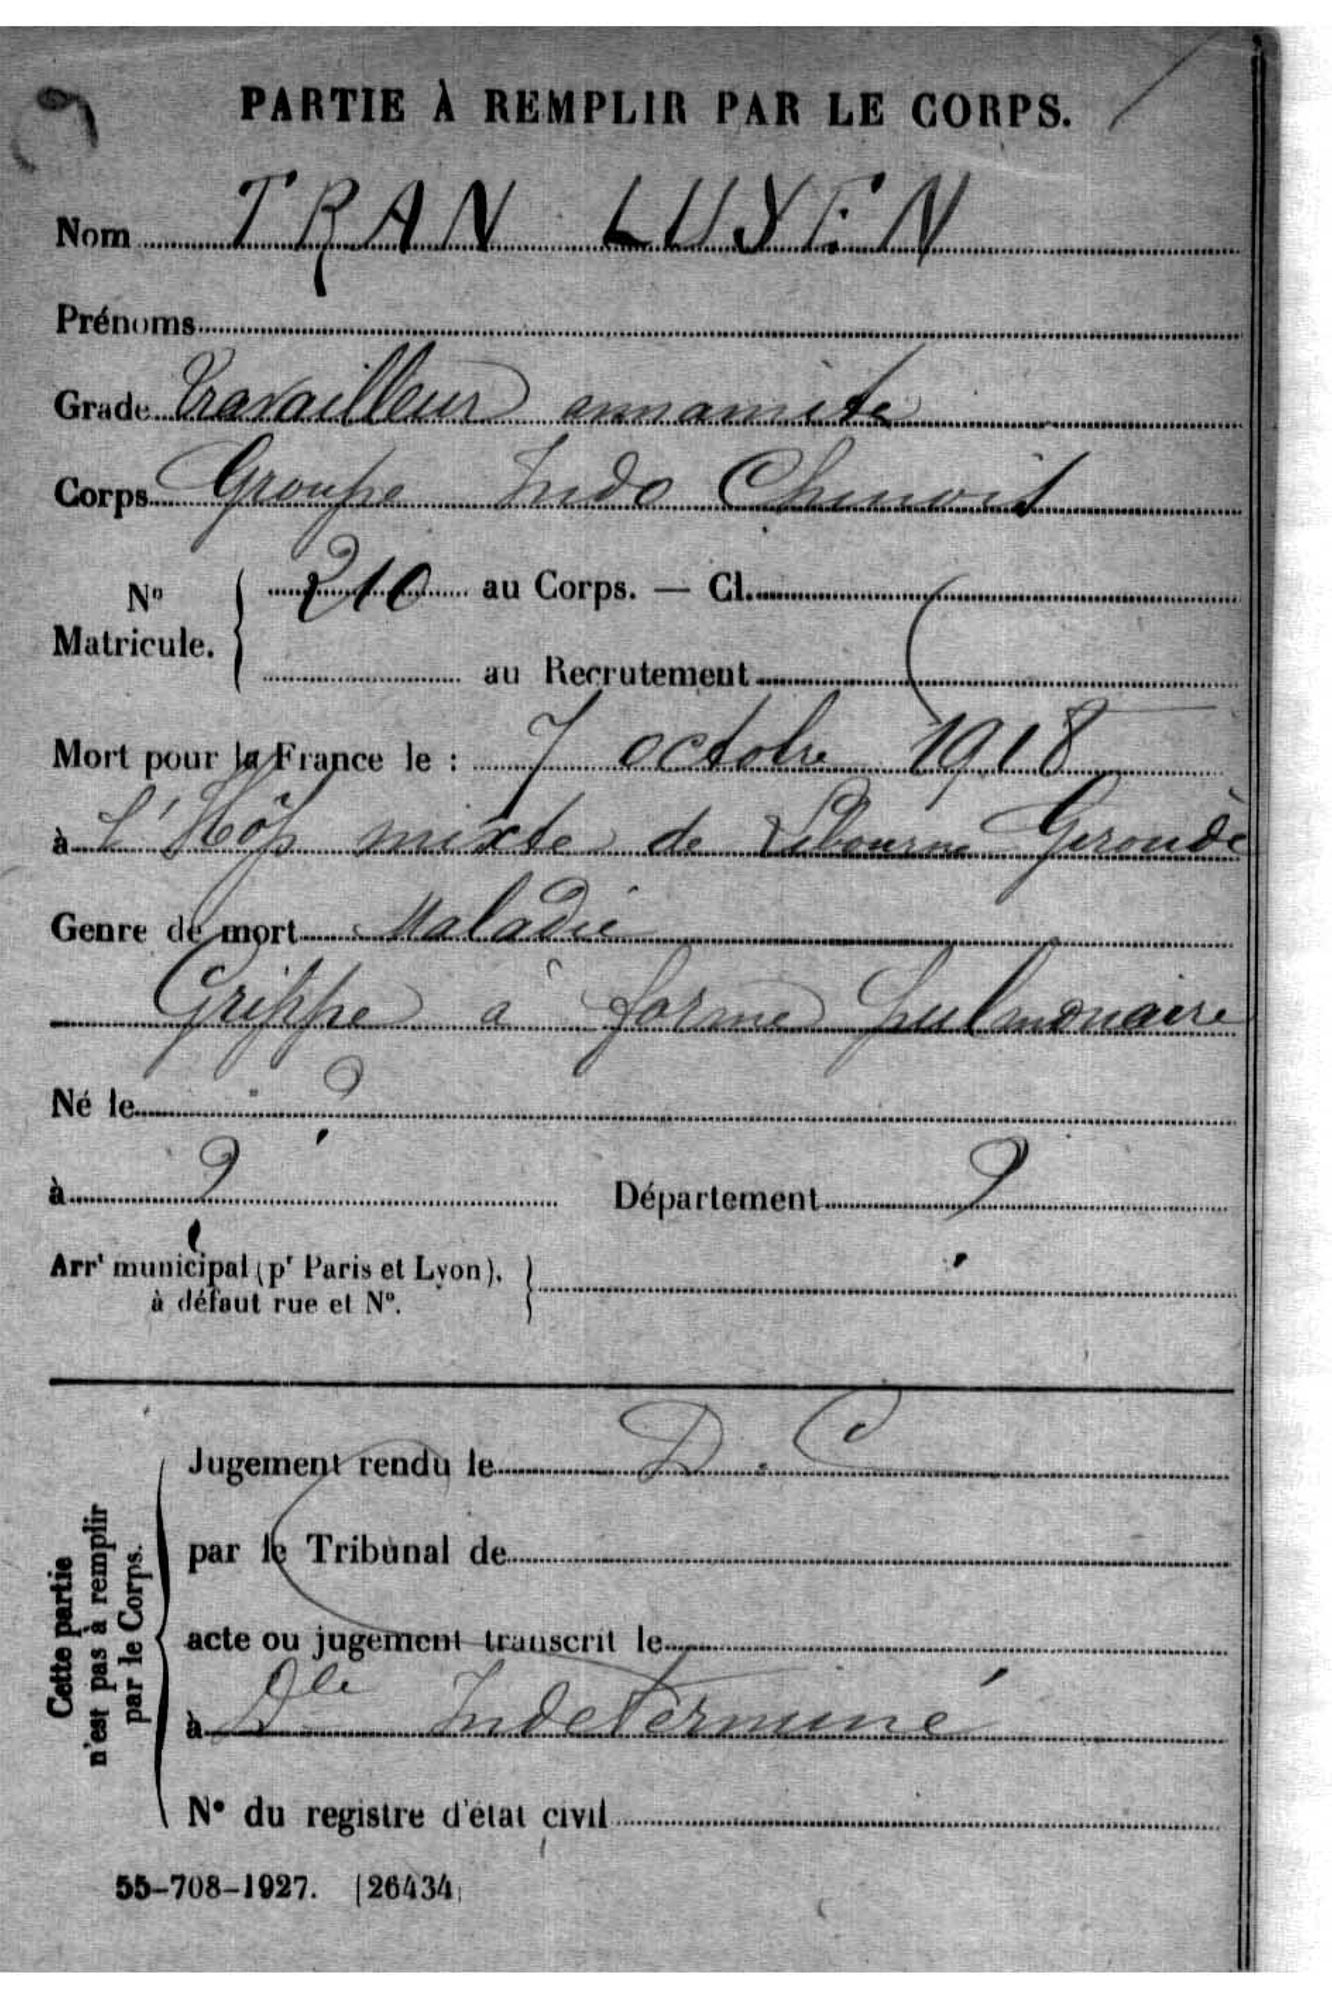 PARTIE À REMPLIR PAR LE CORPS.
Nom TRAN LUYEN
Prénoms
Grade Travailleur annamite
Corps Groupe Indo Chinois
No Matricule. 210 au Corps. — Cl.
au Recrutement
Mort pour la France le : 7 octobre 1918
à l'Hôp mixte de Libourne Gironde
Genre de mort Maladie
Grippe à forme pulmonaire
Né le ?
à ? Département ?
Arrt municipal (pr Paris et Lyon), à défaut rue et No.
Cette partie n'est pas à remplir par le Corps.
Jugement rendu le D. C
par le Tribunal de
acte ou jugement transcrit le
à Dle Indeterminé
No du registre d'état civil
55-708-1927. [26434]